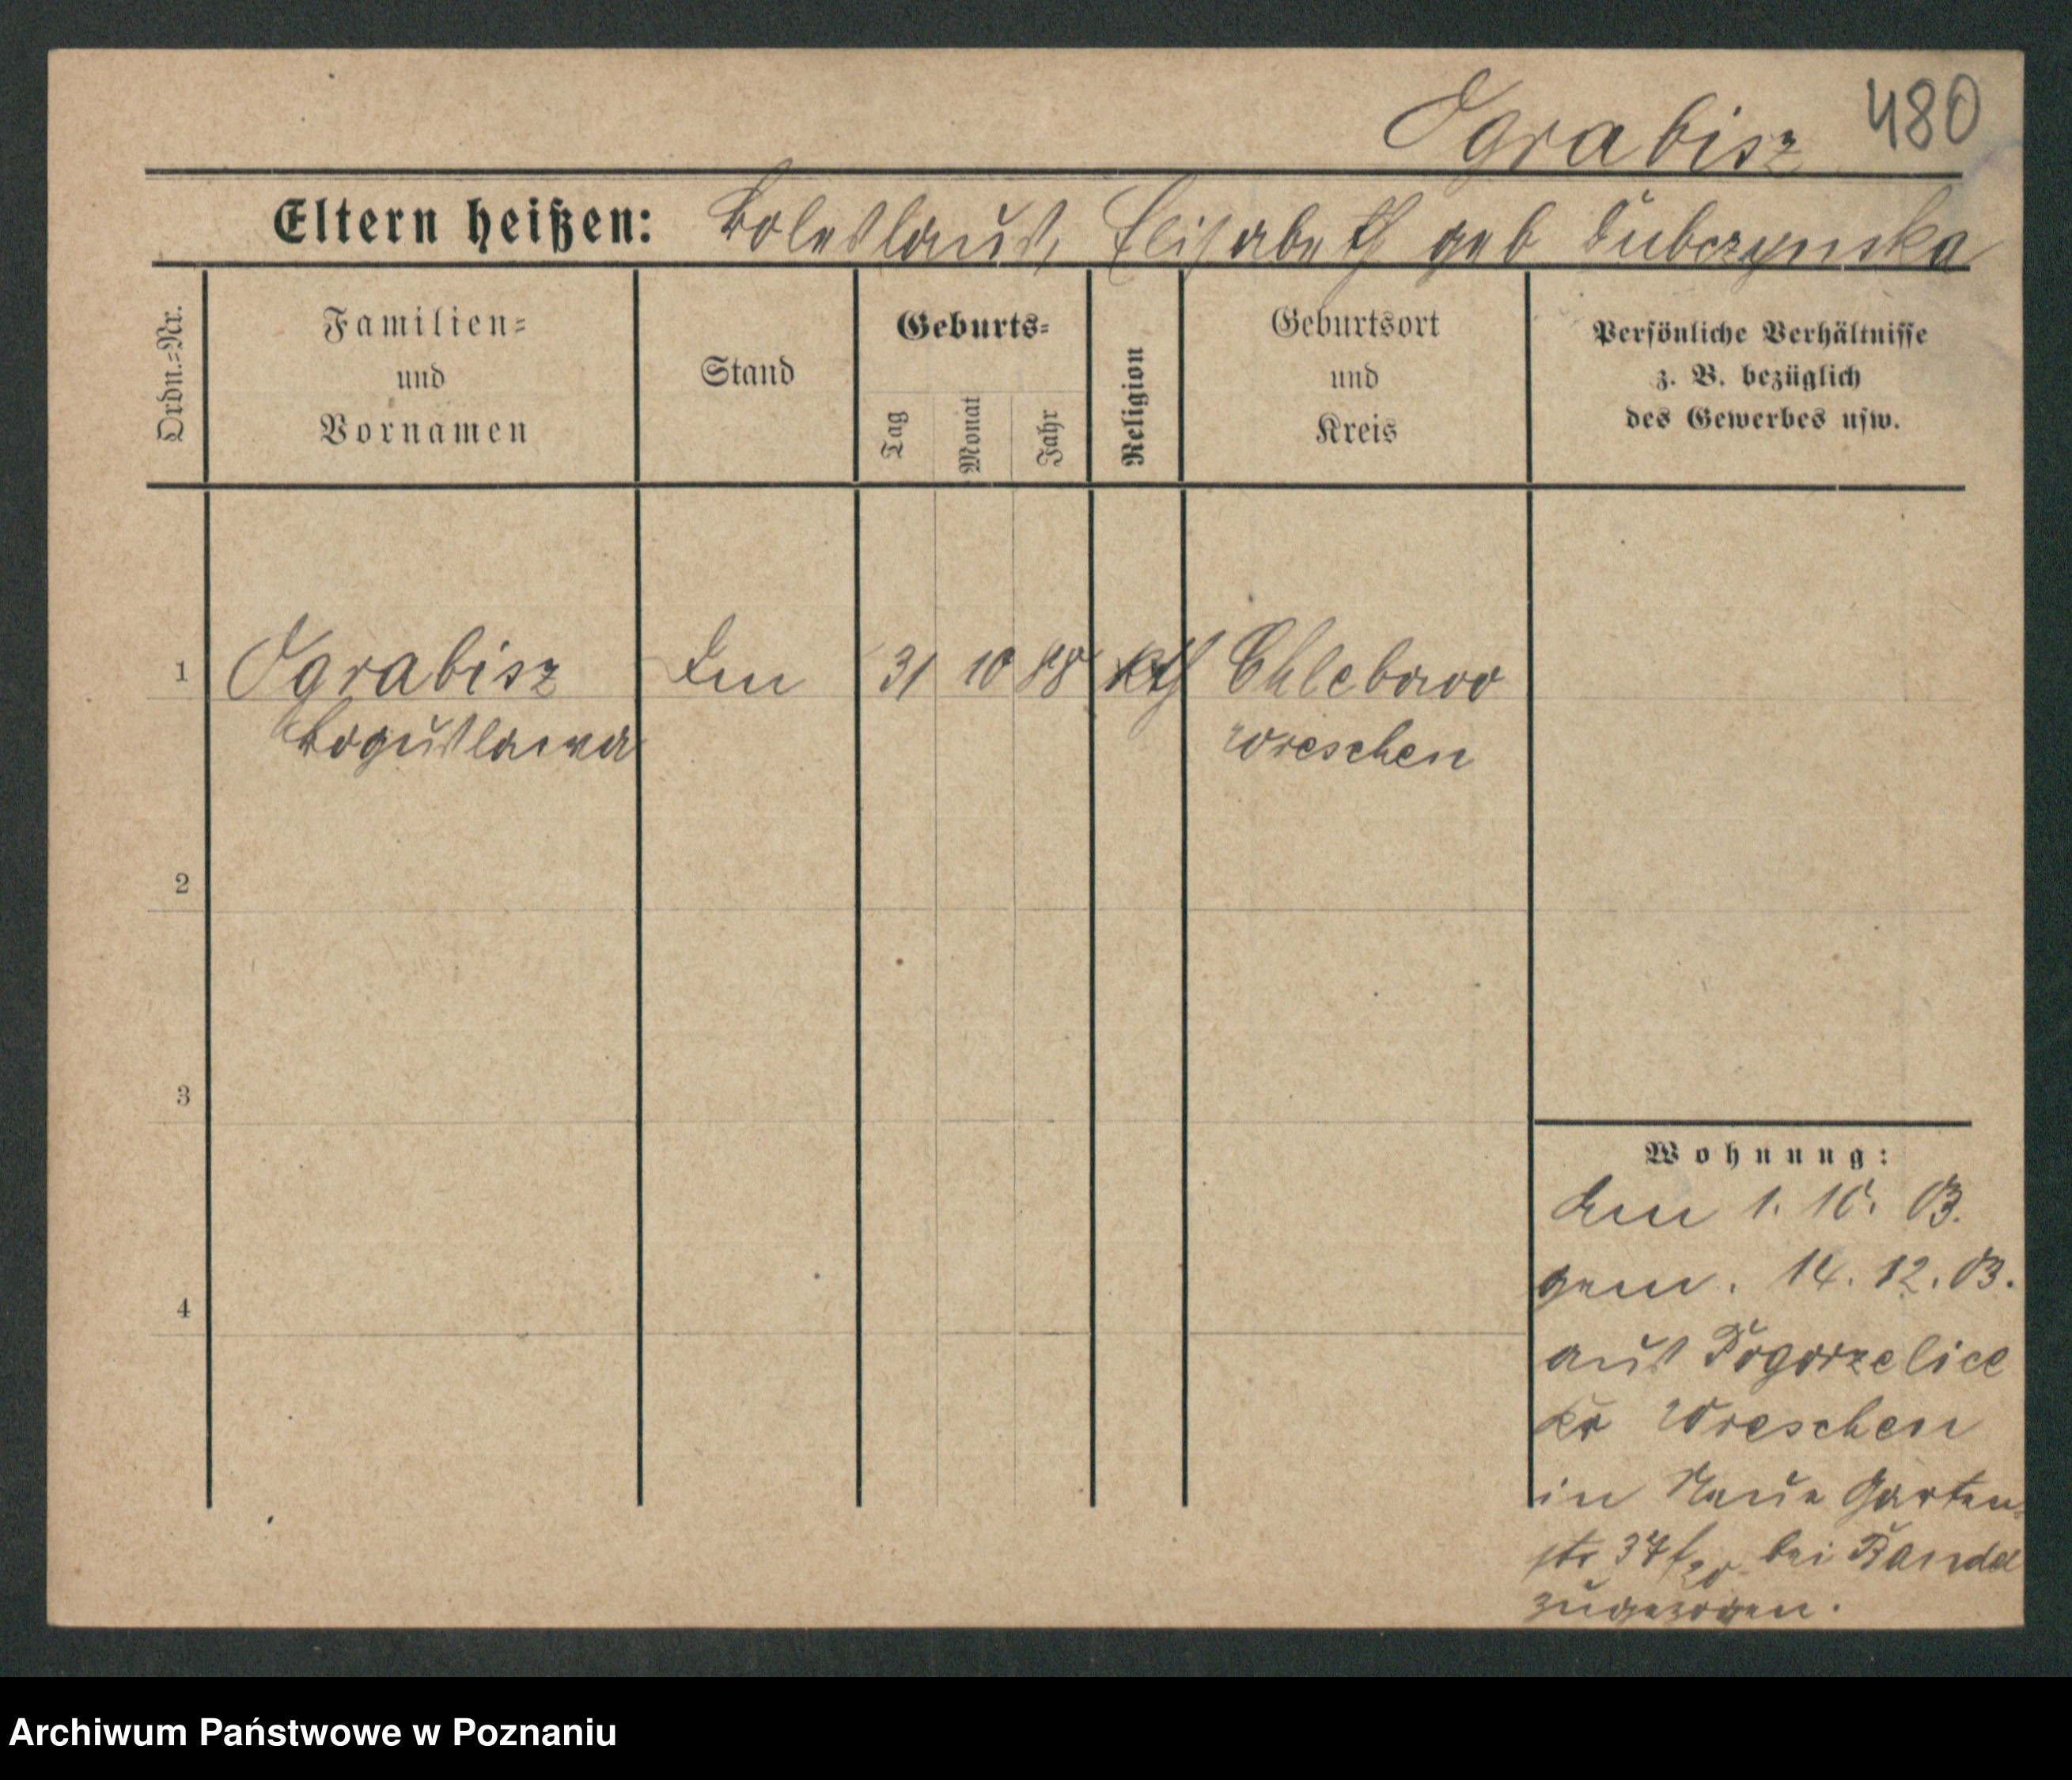 480
Ograbisz
Eltern heißen: Boleslaus, Elisabeth geb Dubczynska
Ordn.-Nr.
Familien-
und
Vornamen
Stand
Geburts-
Tag
Monat
Jahr
Religion
Geburtsort
und
Kreis
Persönliche Verhältnisse
z. B. bezüglich
des Gewerbes usw.
1 Ograbisz 31 10 88 kth Chlebowo
Boguslawa Wreschen
2
3
4
Wohnung:
Den 1. 10. 03.
gem. 14. 12. 03.
aus Pogorzelice
Kr Wreschen
in Neue Garten-
str 37 bei Bandel
zugezogen.
Archiwum Państwowe w Poznaniu